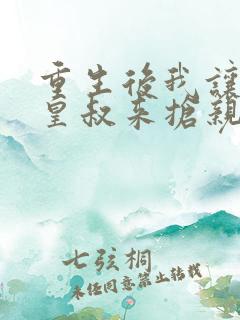 重生後我讓
皇叔來搶親
七弦桐
未經同意禁止轉載